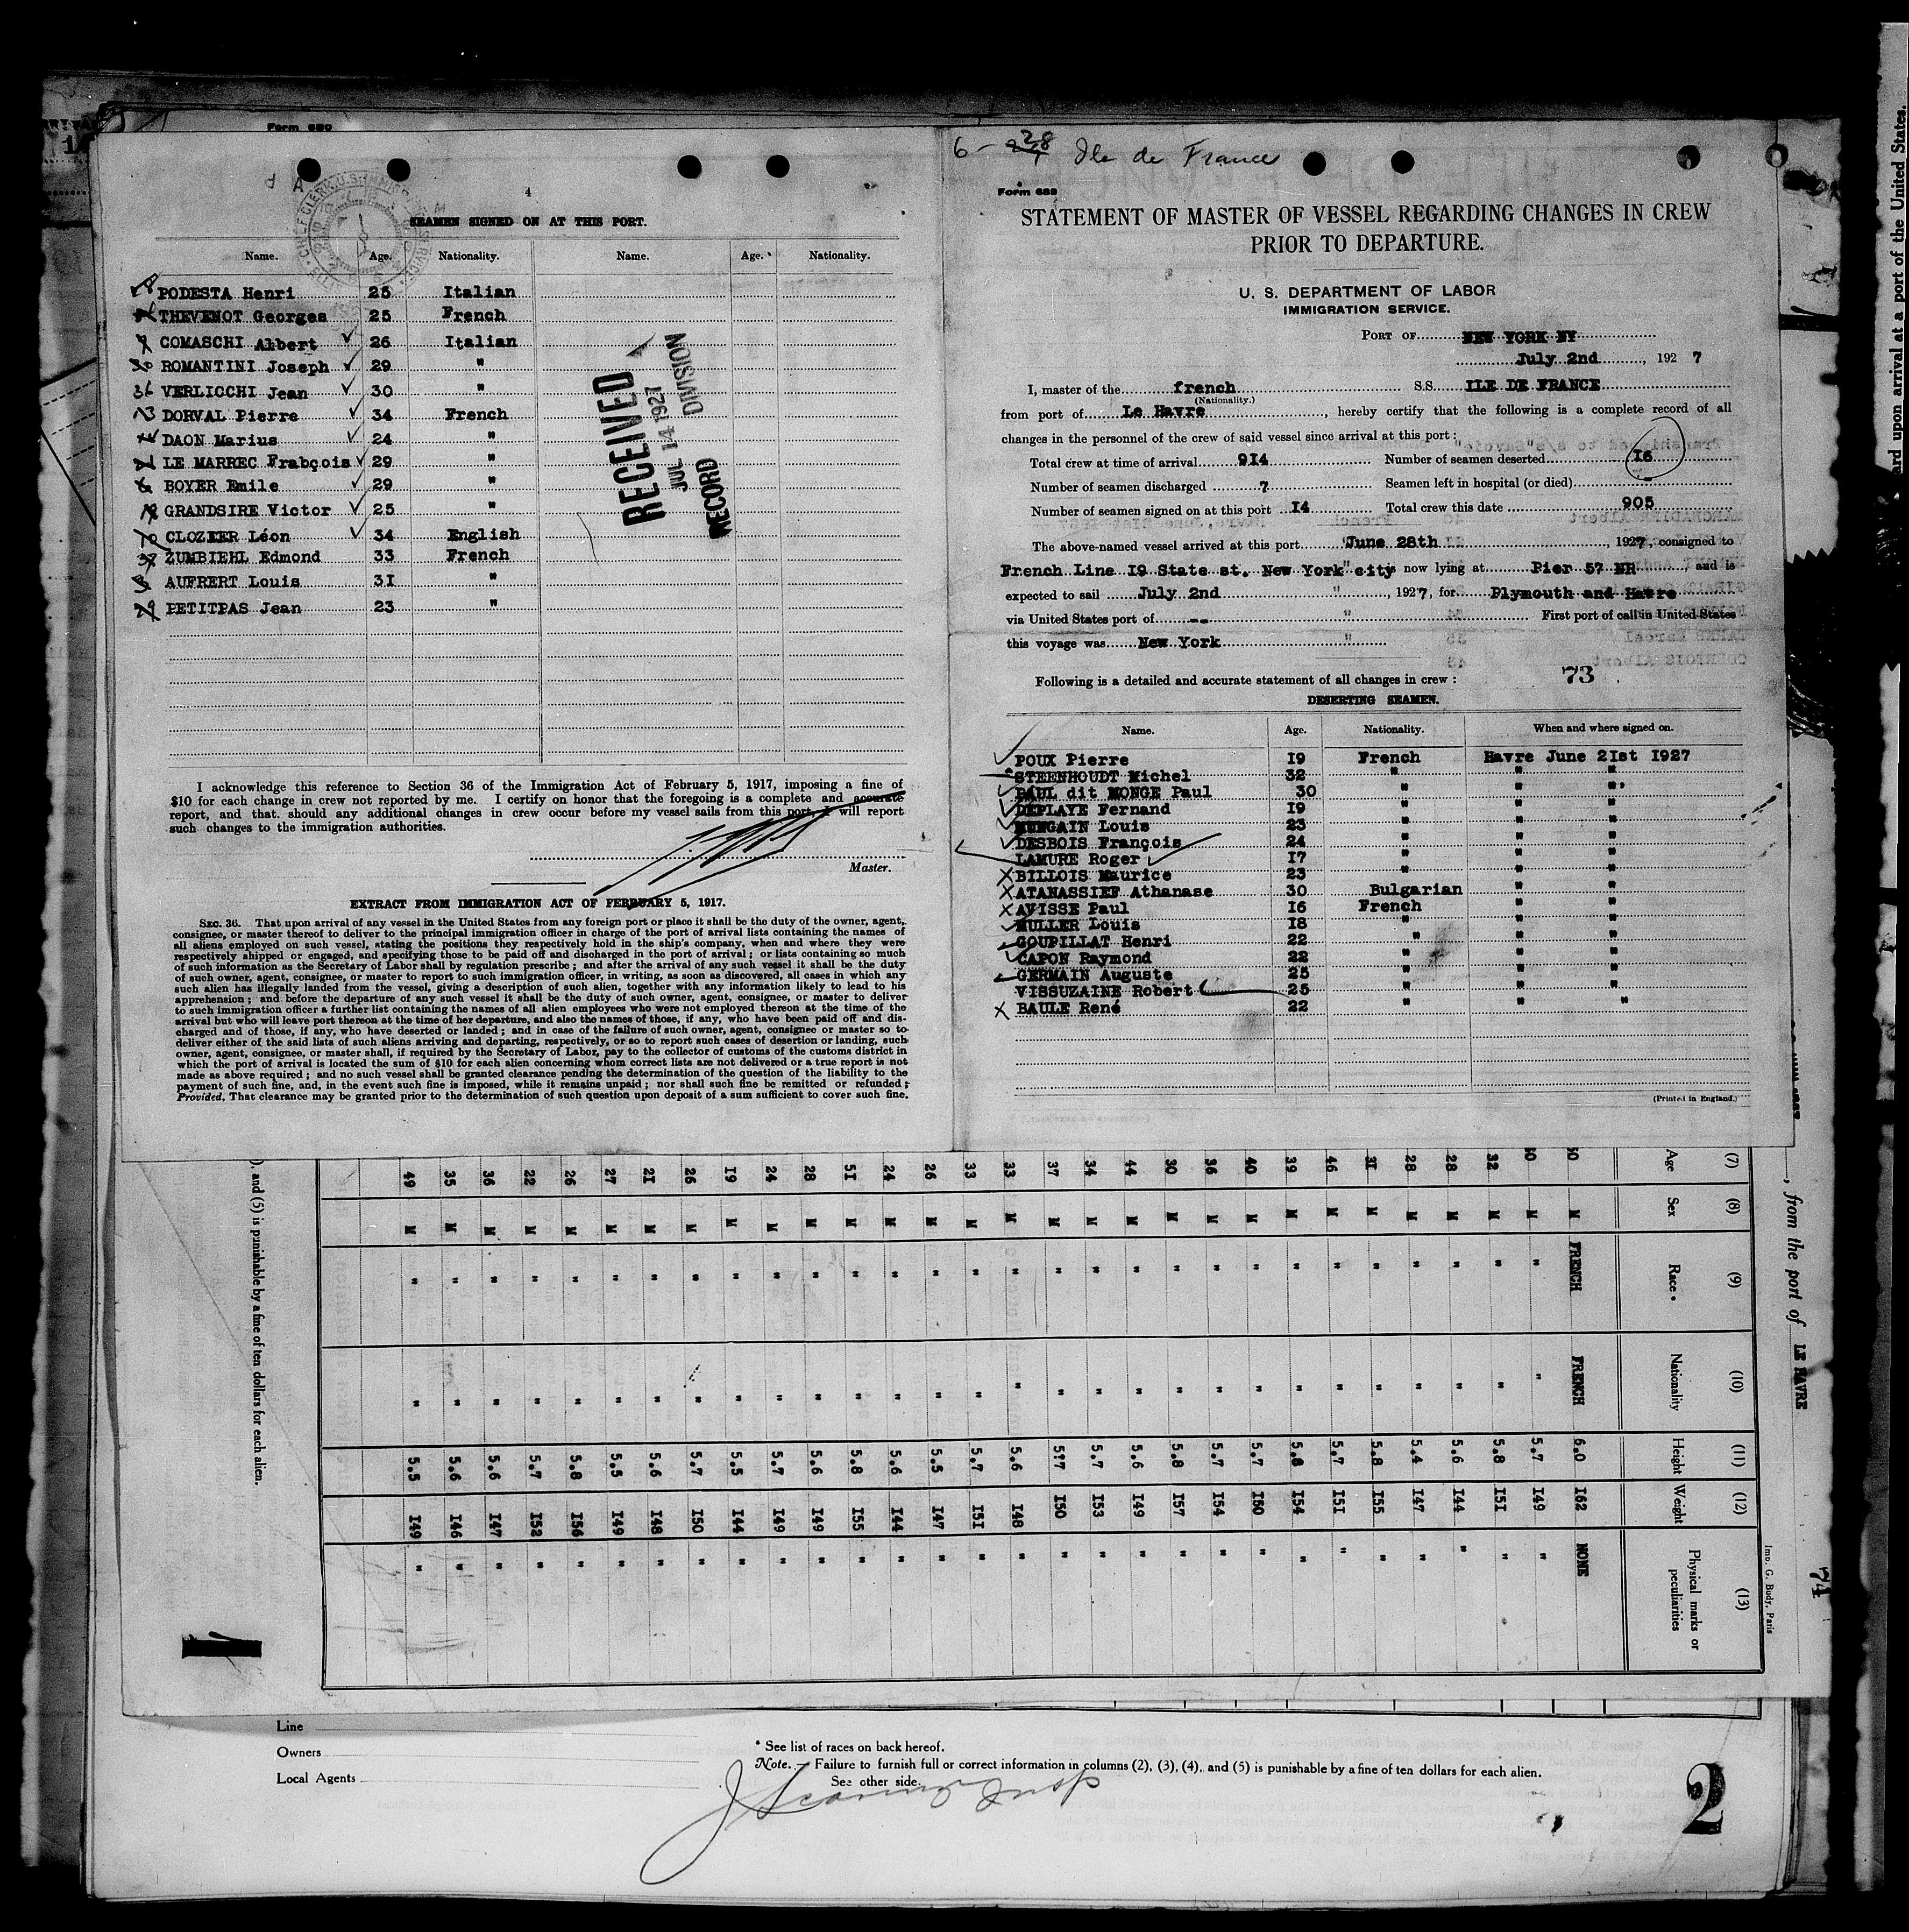 Form 680
4
SEAMEN SIGNED ON AT THIS PORT.
Name. Age. Nationality. Name. Age. Nationality.
PODESTA Henri 25 Italian
THEVENOT Georges 25 French
COMASCHI Albert 26 Italian
30 ROMANTINI Joseph 29 "
36 VERLICCHI Jean 30 "
13 DORVAL Pierre 34 French
DAON Marius 24 "
LE MARREC Frabçois 29 "
BOYER Emile 29 "
GRANDSIRE Victor 25 "
CLOZIER Léon 34 English
ZUMBIEHL Edmond 33 French
AUFRERT Louis 3I "
PETITPAS Jean 23 "
RECEIVED
JUL 14 1927
RECORD DIVISION
I acknowledge this reference to Section 36 of the Immigration Act of February 5, 1917, imposing a fine of
$10 for each change in crew not reported by me. I certify on honor that the foregoing is a complete and accurate
report, and that should any additional changes in crew occur before my vessel sails from this port, I will report
such changes to the immigration authorities.
Master.
EXTRACT FROM IMMIGRATION ACT OF FEBRUARY 5, 1917.
SEC. 36. That upon arrival of any vessel in the United States from any foreign port or place it shall be the duty of the owner, agent,
consignee, or master thereof to deliver to the principal immigration officer in charge of the port of arrival lists containing the names of
all aliens employed on such vessel, stating the positions they respectively hold in the ship's company, when and where they were
respectively shipped or engaged, and specifying those to be paid off and discharged in the port of arrival; or lists containing so much
of such information as the Secretary of Labor shall by regulation prescribe; and after the arrival of any such vessel it shall be the duty
of such owner, agent, consignee, or master to report to such immigration officer, in writing, as soon as discovered, all cases in which any
such alien has illegally landed from the vessel, giving a description of such alien, together with any information likely to lead to his
apprehension; and before the departure of any such vessel it shall be the duty of such owner, agent, consignee, or master to deliver
to such immigration officer a further list containing the names of all alien employees who were not employed thereon at the time of the
arrival but who will leave port thereon at the time of her departure, and also the names of those, if any, who have been paid off and dis-
charged and of those, if any, who have deserted or landed; and in case of the failure of such owner, agent, consignee or master so to
deliver either of the said lists of such aliens arriving and departing, respectively, or so to report such cases of desertion or landing, such
owner, agent, consignee, or master shall, if required by the Secretary of Labor, pay to the collector of customs of the customs district in
which the port of arrival is located the sum of $10 for each alien concerning whom correct lists are not delivered or a true report is not
made as above required; and no such vessel shall be granted clearance pending the determination of the question of the liability to the
payment of such fine, and, in the event such fine is imposed, while it remains unpaid; nor shall such fine be remitted or refunded;
Provided, That clearance may be granted prior to the determination of such question upon deposit of a sum sufficient to cover such fine.
6 - 28 Ile de France
Form 689
STATEMENT OF MASTER OF VESSEL REGARDING CHANGES IN CREW
PRIOR TO DEPARTURE.
U. S. DEPARTMENT OF LABOR
IMMIGRATION SERVICE.
PORT OF NEW YORK NY
July 2nd, 192 7
I, master of the french S.S. ILE DE FRANCE
(Nationality.)
from port of Le Havre, hereby certify that the following is a complete record of all
changes in the personnel of the crew of said vessel since arrival at this port:
Total crew at time of arrival 9I4 Number of seamen deserted I6
Number of seamen discharged 7 Seamen left in hospital (or died)
Number of seamen signed on at this port I4 Total crew this date 905
The above-named vessel arrived at this port June 28th, 1927, consigned to
French Line I9 State st. New York city is now lying at Pier 57 NR and is
expected to sail July 2nd, 1927, for Plymouth and Havre
via United States port of -- First port of call in United States
this voyage was New York
Following is a detailed and accurate statement of all changes in crew: 73
DESERTING SEAMEN.
Name. Age. Nationality. When and where signed on.
POUX Pierre I9 French Havre June 2Ist I927
STEENHOUDT Michel 32 " " "
PAUL dit MONGE Paul 30 " " "
DEPLAYE Fernand I9 " " "
MUNGAIN Louis 23 " " "
DESBOIS François 24 " " "
LAMURE Roger I7 " " "
BILLOIS Maurice 23 " " "
ATANASSIEF Athanase 30 Bulgarian " "
AVISSE Paul I6 French " "
MULLER Louis I8 " " "
GOUPILLAT Henri 22 " " "
CAPON Raymond 22 " " "
GERMAIN Auguste 25 " " "
VISSUZAINE Robert 25 " " "
BAULE René 22 " " "
(Printed in England.)
(7) Age 49 35 36 22 26 27 2I 26 I9 24 28 5I 24 26 33 33 37 34 44 30 36 40 39 46 3I 28 28 32
(8) Sex M M M M M M M M M M M M M M M M M M M M M M M M M M M M M M
(9) Race * " " " " " " " " " " " " " " " " " " " " " " " " " " " " " FRENCH
(10) Nationality " " " " " " " " " " " " " " " " " " " " " " " " " " " " " FRENCH
(11) Height 5.5 5.6 5.6 5.7 5.8 5.5 5.6 5.7 5.5 5.7 5.6 5.8 5.6 5.5 5.7 5.6 5.7 5.7 5.6 5.8 5.7 5.7 5.8 5.7 5.8 5.4 5.6 5.8 5.7 6.0
(12) Weight I49 I46 I47 I52 I56 I49 I48 I50 I44 I49 I49 I55 I44 I47 I5I I48 I50 I53 I49 I57 I54 I50 I54 I5I I55 I47 I44 I5I I49 I62
(13) Physical marks or peculiarities " " " " " " " " " " " " " " " " " " " " " " " " " " " " " NONE
, and (5) is punishable by a fine of ten dollars for each alien.
, from the port of LE HAVRE
Imp. G. Budy, Paris
74
ard upon arrival at a port of the United States.
Line
Owners
Local Agents
* See list of races on back hereof.
Note. - Failure to furnish full or correct information in columns (2), (3), (4), and (5) is punishable by a fine of ten dollars for each alien.
See other side.
2